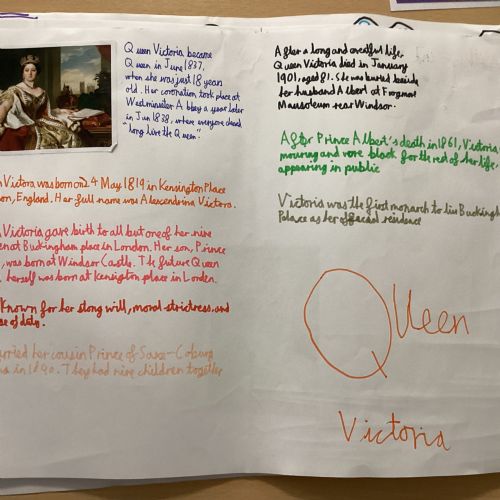 Queen Victoria became
Queen in June 1837,
when she was just 18 years
old. Her coronation took place at
Westminister Abbey a year later
in Jun 1838, where everyone cheered
"long live the Queen"
n Victora was born on 24 May 1819 in Kensington Place
on, England. Her full name was Alexandrina Victora.
n Victoria gave birth to all but one of her nine
en at Buckingham place in London. Her son, Prince
, was born at Windsor Castle. The future Queen
herself was born at Kensigton place in London.
known for her stong will, moral strictress, and
se of duty.
rried her cousin Prince of Saxe-Coburg
in 1840. They had nine children together
After a long and eventful life,
Queen Victoria died in January
1901, aged 81. She was buried beside
her husband Albert at Frogmore
Mausoleum near Windsor.
After Prince Albert's death in 1861, Victoria
mouring and wore black for the rest of her life,
appearing in public
Victoria was the first monarch to live Bucking
Palace as her official residence
Queen
Victoria